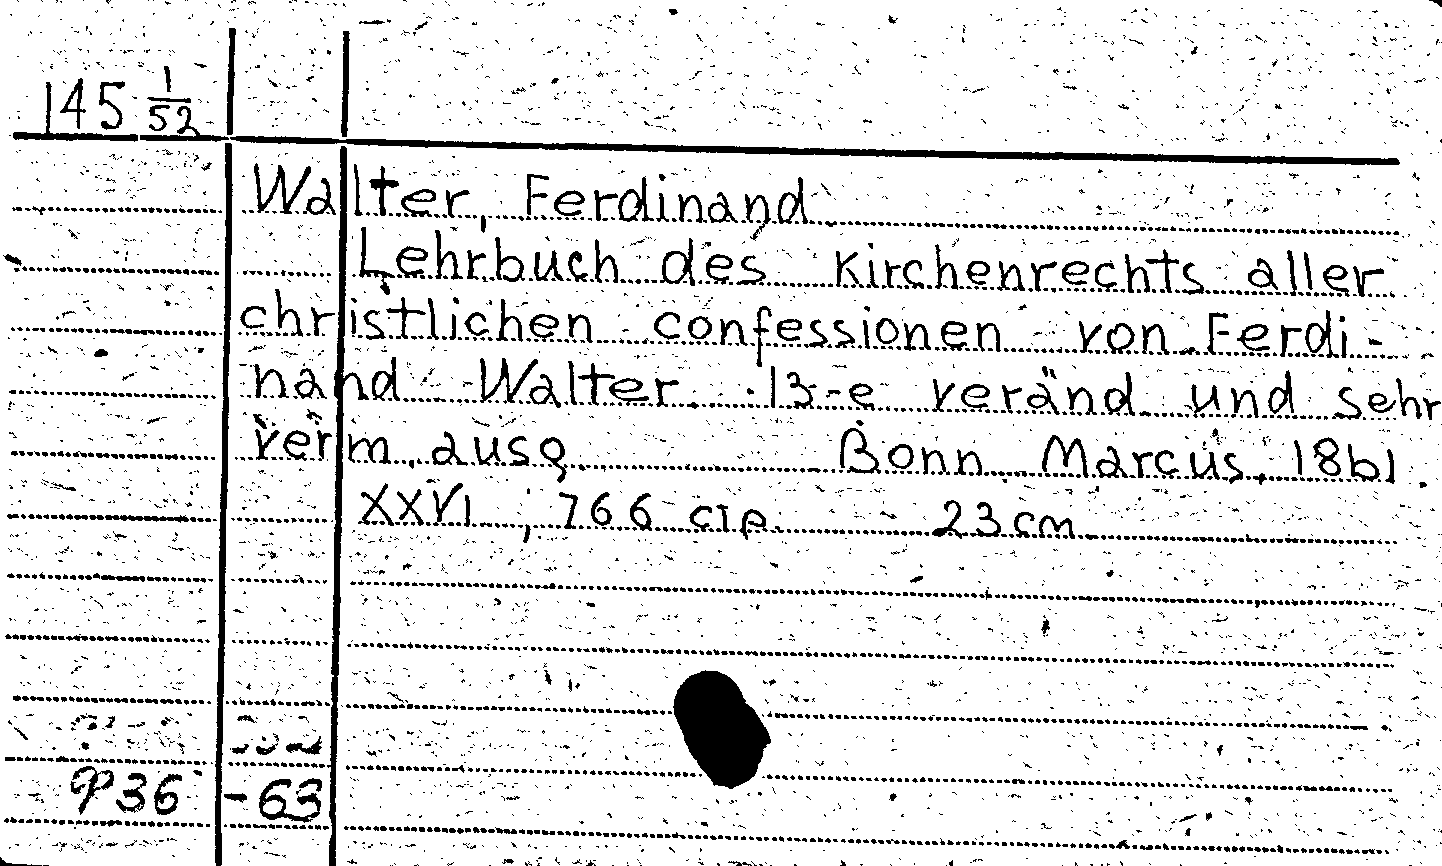 145 1/52
Walter, Ferdinand
Lehrbuch des Kirchenrechts aller
christlichen confessionen von Ferdi-
nand Walter. 13-e veränd und sehr
verm. ausg. Bonn Marcus, 1861.
XXVI, 766 стр. 23 cm
936 -63